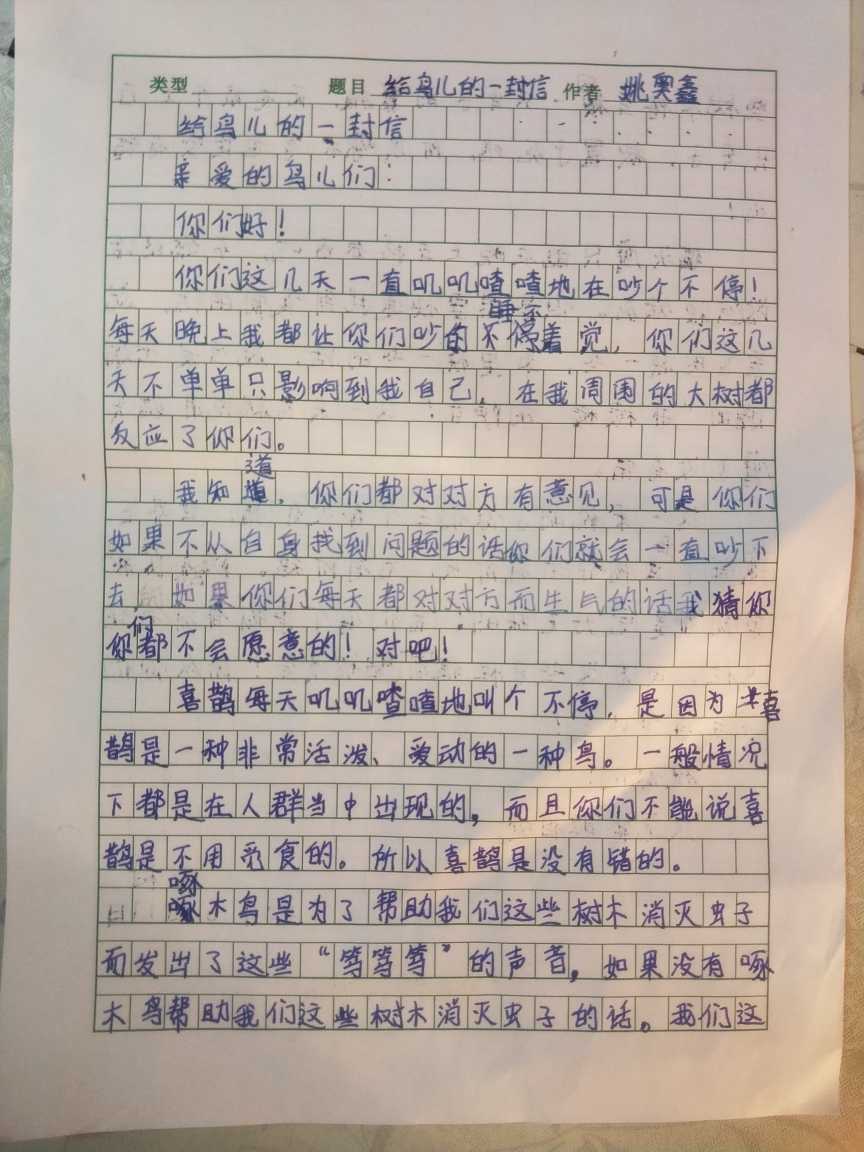 类型 题目 给鸟儿的一封信 作者 姚奥鑫
给鸟儿的一封信
亲爱的鸟儿们:
你们好!
你们这几天一直叽叽喳喳地在吵个不停!
睡不
每天晚上我都让你们吵的不停着觉,你们这几
天不单单只影响到我自己,在我周围的大树都
反应了你们。
道
我知道,你们都对对方有意见,可是你们
如果不从自身找到问题的话你们就会一直吵下
去,如果你们每天都对对方而生气的话我猜你
们
你都不会愿意的!对吧!
喜鹊每天叽叽喳喳地叫个不停,是因为喜
鹊是一种非常活泼、爱动的一种鸟。一般情况
下都是在人群当中出现的,而且你们不能说喜
鹊是不用觅食的。所以喜鹊是没有错的。
啄
啄木鸟是为了帮助我们这些树木消灭虫子
而发出了这些“笃笃笃”的声音,如果没有啄
木鸟帮助我们这些树木消灭虫子的话。我们这